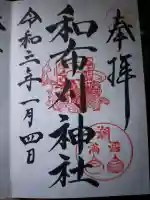 奉拝
和布刈神社
令和三年一月四日
満
潮